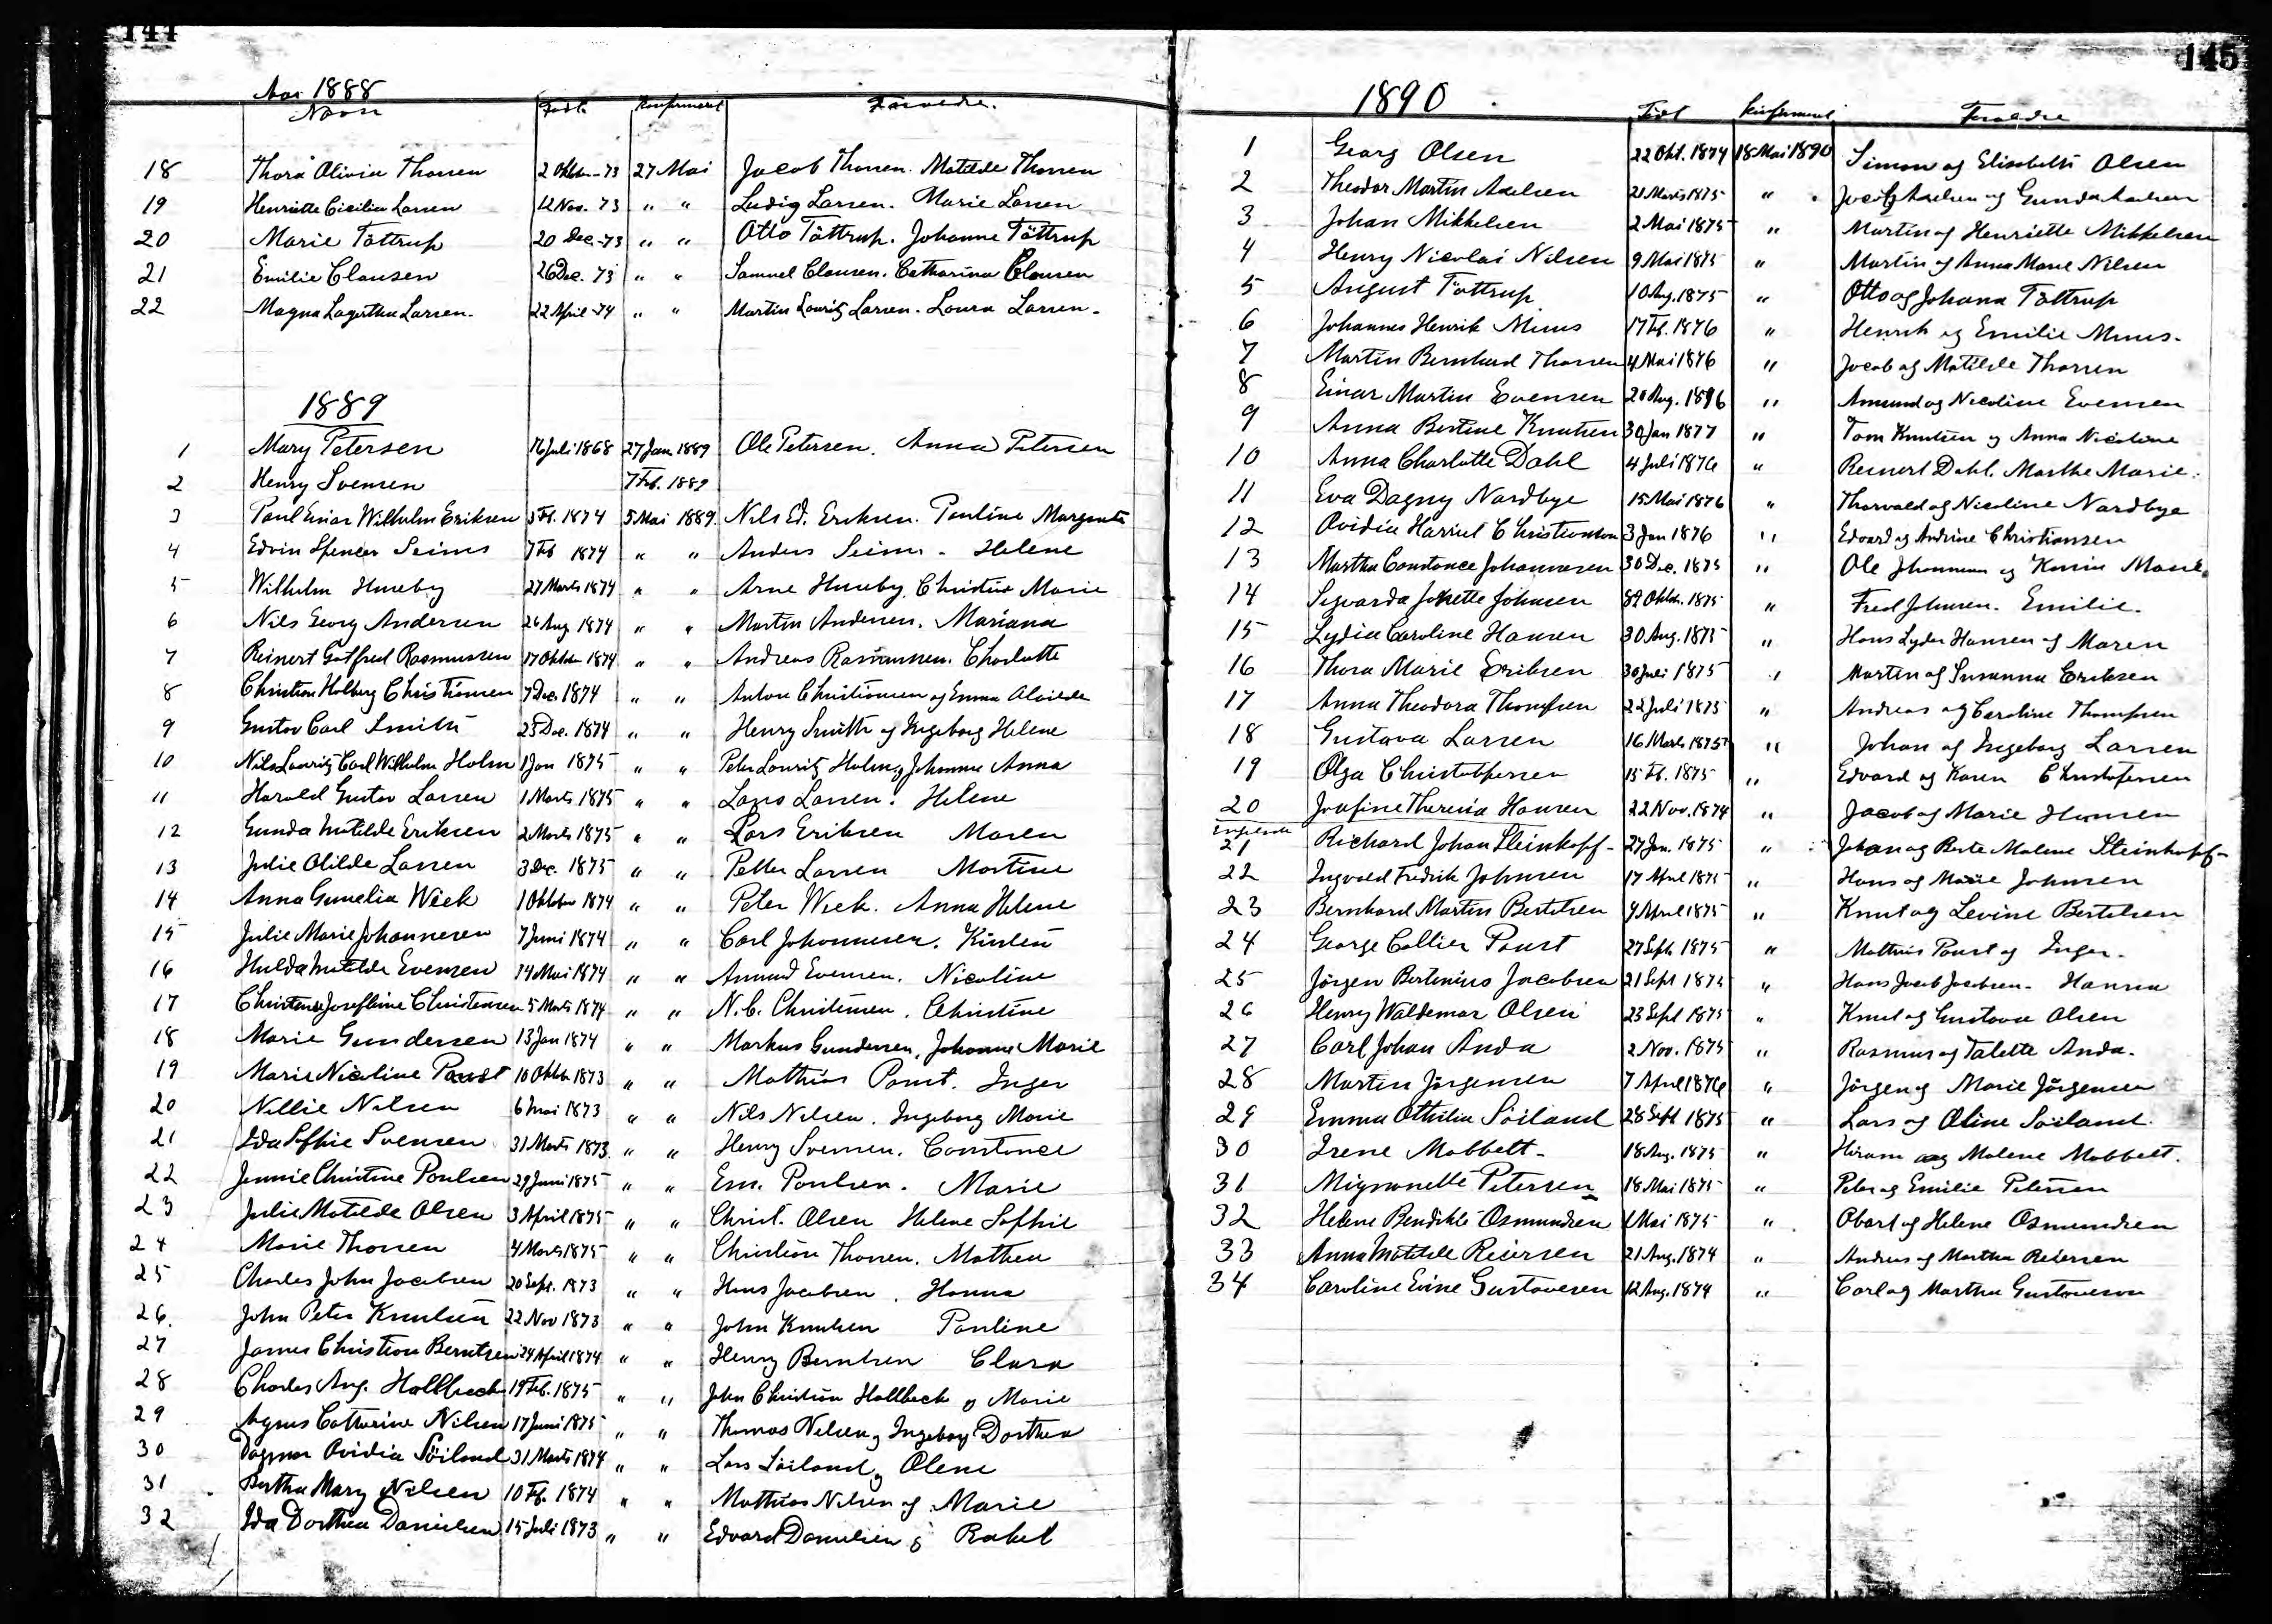 144
Aar 1888
Navn Født Konfirmeret Forældre.
18 Thora Olivia Thorsen 2 Oktbr-73 27 Mai Jacob Thorsen. Matilde Thorsen
19 Henriette Cicilia Larsen 12 Nov. 73 " " Ludvig Larsen. Marie Larsen
20 Marie Töttrup 20 Dec-73 " " Otto Töttrup. Johanne Töttrup
21 Emilie Clausen 26 Dec. 73 " " Samuel Clausen. Catharina Clausen
22 Magna Lagertha Larsen. 22 April-74 " " Martin Lauritz Larsen. Laura Larsen.
1889
1 Mary Petersen 16 Juli 1868 27 Jan 1889 Ole Petersen. Anna Petersen
2 Henry Svensen 7 Feb. 1889
3 Paul Einar Wilhelm Eriksen 3 Fb. 1874 5 Mai 1889. Nils Ed. Eriksen. Pauline Margrete
4 Edvin Spencer Seims 7 Feb 1874 " " Anders Seims - Helene
5 Wilhelm Huseby 27 Marts 1874 " " Arne Huseby. Christine Marie
6 Nils Georg Andersen 26 Aug 1874 " " Martin Andersen. Mariana
7 Reinert Gotfred Rasmussen 17 Oktober 1874 " " Andreas Rasmussen. Charlotte
8 Christian Holberg Christiansen 7 Dec. 1874 " " Anton Christiansen og Emma Alvilde
9 Gustav Carl Smith 25 Dec. 1874 " " Henry Smith og Ingeborg Helene
10 Nils Lauritz Carl Wilhelm Holm 1 Jan 1875 " " Peter Lauritz Holm og Johanne Anna
11 Harald Gustav Larsen 1 Marts 1875 " " Lars Larsen. Helene
12 Gunda Matilde Eriksen 2 Marts 1875 " " Lars Eriksen Maren
13 Julie Otilde Larsen 3 Dec. 1875 " " Petter Larsen Martine
14 Anna Gunelia Wiek 1 Oktober 1874 " " Peter Wiek. Anna Helene
15 Julie Marie Johannesen 7 Juni 1874 " " Carl Johannesen. Kirsten
16 Hulda Matilde Evensen 14 Mai 1874 " " Amund Evensen. Nicoline
17 Christense Josephine Christensen 5 Marts 1874 " " N. C. Christensen. Christine
18 Marie Gundersen 13 Jan 1874 " " Markus Gundersen, Johanne Marie
19 Marie Nicoline Poust 10 Oktbr 1873 " " Mathias Poust. Inger
20 Nillie Nilsen 6 Mai 1873 " " Nils Nilsen. Ingeborg Marie
21 Ida Sophie Svensen 31 Marts 1873. " " Henry Svensen. Constance
22 Jennie Christine Poulsen 29 Juni 1875 " " Em. Poulsen. Marie
23 Julie Matilde Olsen 3 April 1875 " " Christ. Olsen Helene Sophie
24 Marie Thorsen 4 Marts 1875 " " Christian Thorsen. Mathea
25 Charles John Jacobsen 20 Sept. 1873 " " Hans Jacobsen. Hanna
26. John Peter Knudsen 22 Nov 1873 " " John Knudsen Pauline
27 James Christian Berntsen 24 April 1874 " " Henry Berntsen Clara
28 Charles Aug. Hallbeck 19 Feb. 1875 " " John Christian Hallbeck og Marie
29 Agnes Catherine Nilsen 17 Juni 1875 " " Thomas Nilsen og Ingeborg Dorthea
30 Dagmar Ovidia Söiland 31 Marts 1874 " " Lars Söiland og Olene
31 Bertha Mary Nilsen 10 Fb. 1874 " " Mathias Nilsen og Marie
32 Ida Dorthea Danielsen 15 Juli 1873 " " Edvard Danielsen og Rakel
145
1890
Født Konfirmeret Forældre
1 Georg Olsen 22 Okt. 1874 18 Mai 1890 Simon og Elisabeth Olsen
2 Theodor Martin Axelsen 21 Marts 1875 " Jacob Axelsen og Gunda Axelsen
3 Johan Mikkelsen 2 Mai 1875 " Martin og Henriette Mikkelsen
4 Henry Nicolai Nilsen 9 Mai 1875 " Martin og Anna Marie Nilsen
5 August Töttrup 10 Aug. 1875 " Otto og Johana Töttrup
6 Johannes Henrik Mius 17 Fb. 1876 " Henrik og Emilie
7 Martin Bernhard Thorsen 4 Mai 1876 " Jacob og Matilde Thorsen
8 Einar Martin Evensen 20 Aug. 1876 " Amund og Nicoline Evensen
9 Anna Bertine Knutsen 30 Jan 1877 " Tom Knutsen og Anna Nicoline
10 Anna Charlotte Dahl 4 Juli 1876 " Reinert Dahl. Marthe Marie.
11 Eva Dagny Nordbye 15 Mai 1876 " Thorvald og Nicoline Nordbye
12 Ovidia Harriet Christiansen 3 Jan 1876 " Edvard og Andrine Christiansen
13 Martha Constance Johannesen 30 Dec. 1875 " Ole Johannesen og Karin Marie.
14 Sigvarda Jonette Johnsen Oktbr. 1875 " Fred Johnsen. Emilie.
15 Lydia Caroline Hansen 30 Aug. 1875 " Hans Lyder Hansen og Maren
16 Thora Marie Eriksen 30 Juli 1875 " Martin og Susanna Eriksen
17 Anna Theodora Thompsen 22 Juli 1875 " Andreas og Caroline Thompsen
18 Gustava Larsen 16 Marts 1875 " Johan og Ingeborg Larsen
19 Olga Christophersen 15 Fb. 1875 " Edvard og Karen Christofersen
20 Josefine Theresia Hansen 22 Nov. 1874 " Jacob og Marie Hansen
Engelske
21 Richard Johan Steinkopf - 27 Jan. 1875 " Johan og Berte Malene Steinkopf -
22 Ingvald Fredrik Johnsen 17 April 1875 " Hans og Marie Johnsen
23 Bernhard Martin Bertelsen 4 April 1875 " Knut og Levine Bertelsen
24 George Collier Poust 27 Sept. 1875 " Mathias Poust og Inger.
25 Jörgen Bertinius Jacobsen 21 Sept 1875 " Hans Jacob Jacobsen - Hanna
26 Henry Waldemar Olsen 23 Sept 1875 " Knut og Gustava Olsen
27 Carl Johan Anda 2 Nov. 1875 " Rasmus og Talette Anda.
28 Martin Jörgensen 7 April 1876 " Jörgen og Marie Jörgensen
29 Emma Othilia Söiland 28 Sept 1875 " Lars og Oline Söiland.
30 Irene Mabbett - 18 Aug. 1875 " Hiram og Malene Mabbett.
31 Mignonette Petersen 18 Mai 1875 " Peter og Emilie Petersen
32 Helene Bendikte Osmundsen 1 Mai 1875 " Obart og Helene Osmundsen
33 Anna Matilde Reiersen 21 Aug. 1874 " Andreas og Martha Reiersen
34 Caroline Evine Gustavesen 12 Aug. 1874 " Carl og Martha Gustaveson